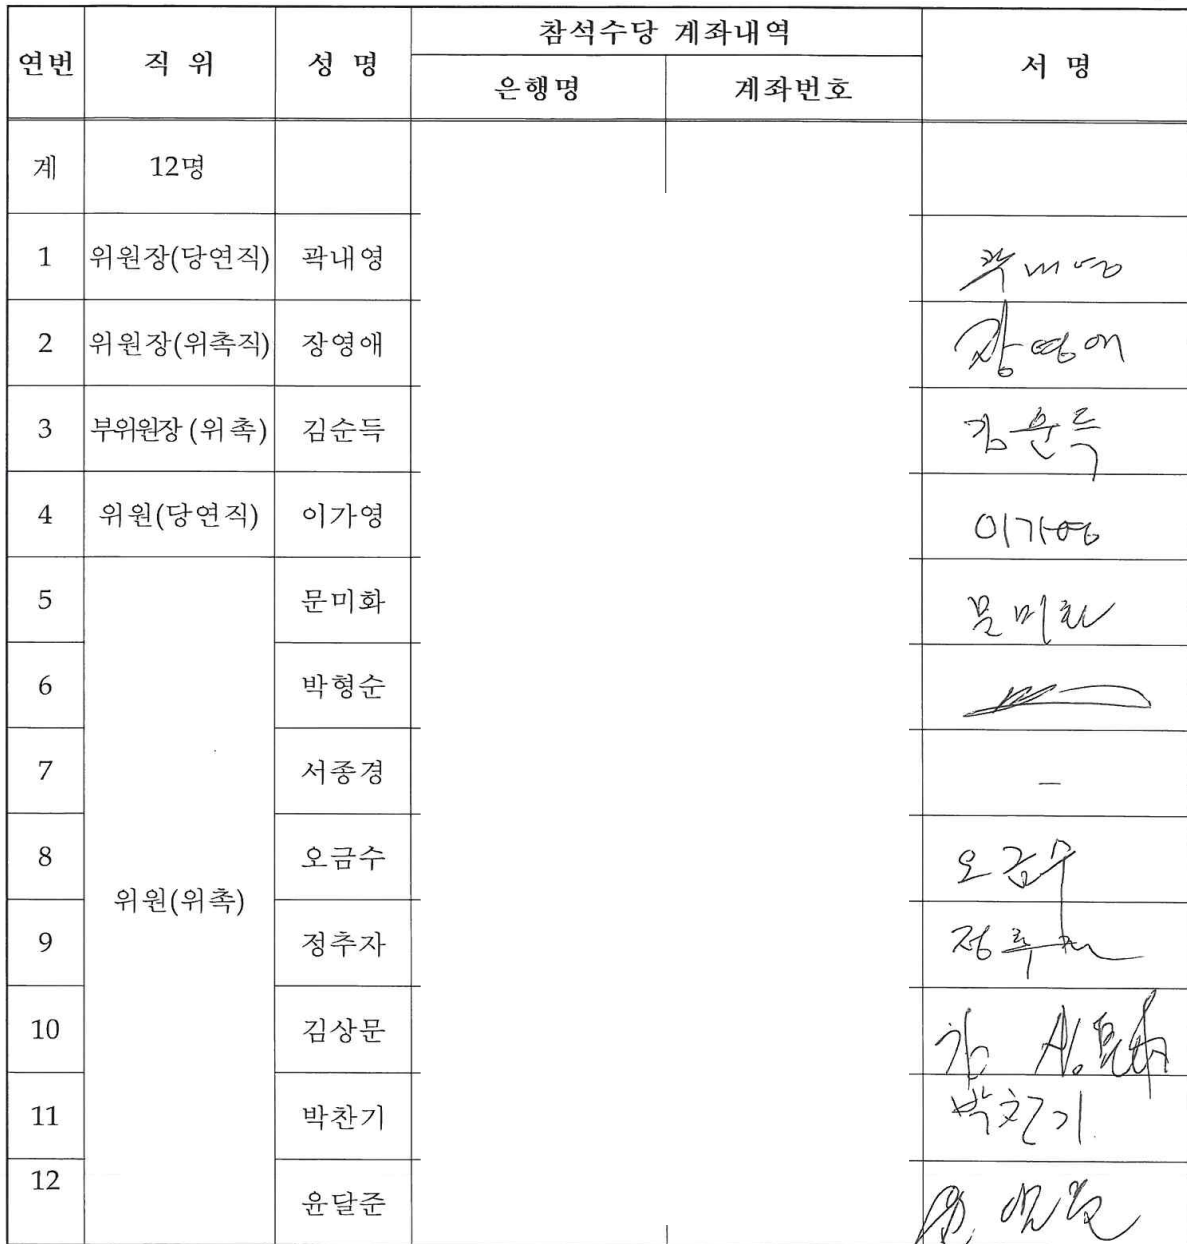 연번 직 위 성 명 참석수당 계좌내역 서 명
은행명 계좌번호
계 12명
1 위원장(당연직) 곽내영 곽내영
2 위원장(위촉직) 장영애 장영애
3 부위원장 (위촉) 김순득 김순득
4 위원(당연직) 이가영 이가영
5 문미화 문미화
6 박형순
7 서종경 –
8 오금수 오금수
위원(위촉)
9 정추자 정추자
10 김상문
11 박찬기 박찬기
12 윤달준